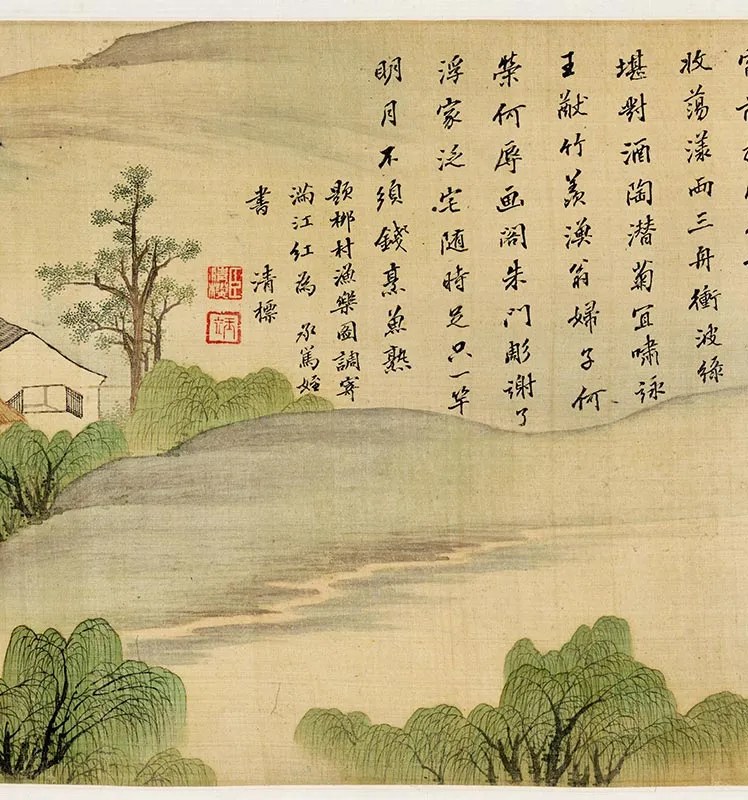 收蕩漾兩三舟衝波綠
堪對酒陶潜菊宜嘯詠
王猷竹羡漁翁婦子何
榮何辱画閣朱門彫謝了
浮家泛宅随時足只一竿
明月不須錢烹魚熟
題柳村漁樂圖調寄
滿江紅為 承篤姪
書 清標